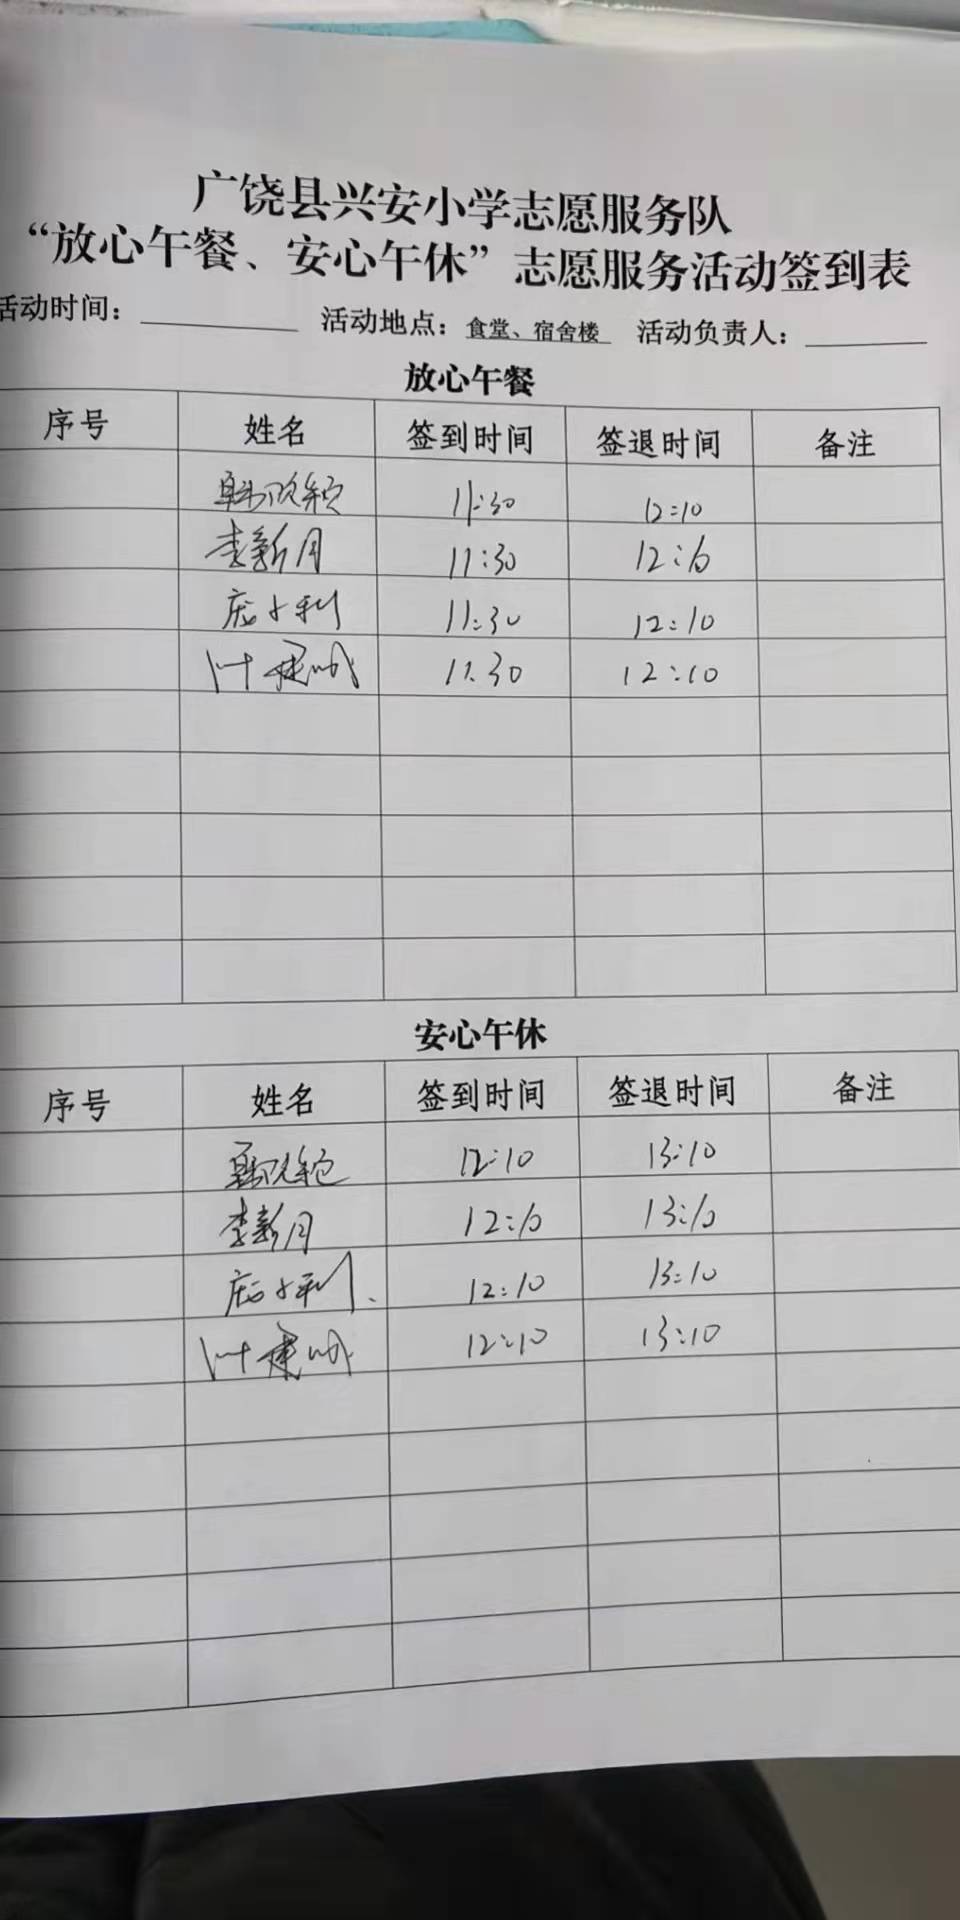 广饶县兴安小学志愿服务队
“放心午餐、安心午休”志愿服务活动签到表
活动时间： 活动地点：食堂、宿舍楼 活动负责人：
放心午餐
序号 姓名 签到时间 签退时间 备注
韩欣颖 11:30 12:10
李新月 11:30 12:10
庞小利 11:30 12:10
叶建 11:30 12:10
安心午休
序号 姓名 签到时间 签退时间 备注
韩欣颖 12:10 13:10
李新月 12:10 13:10
庞小利 12:10 13:10
叶建 12:10 13:10